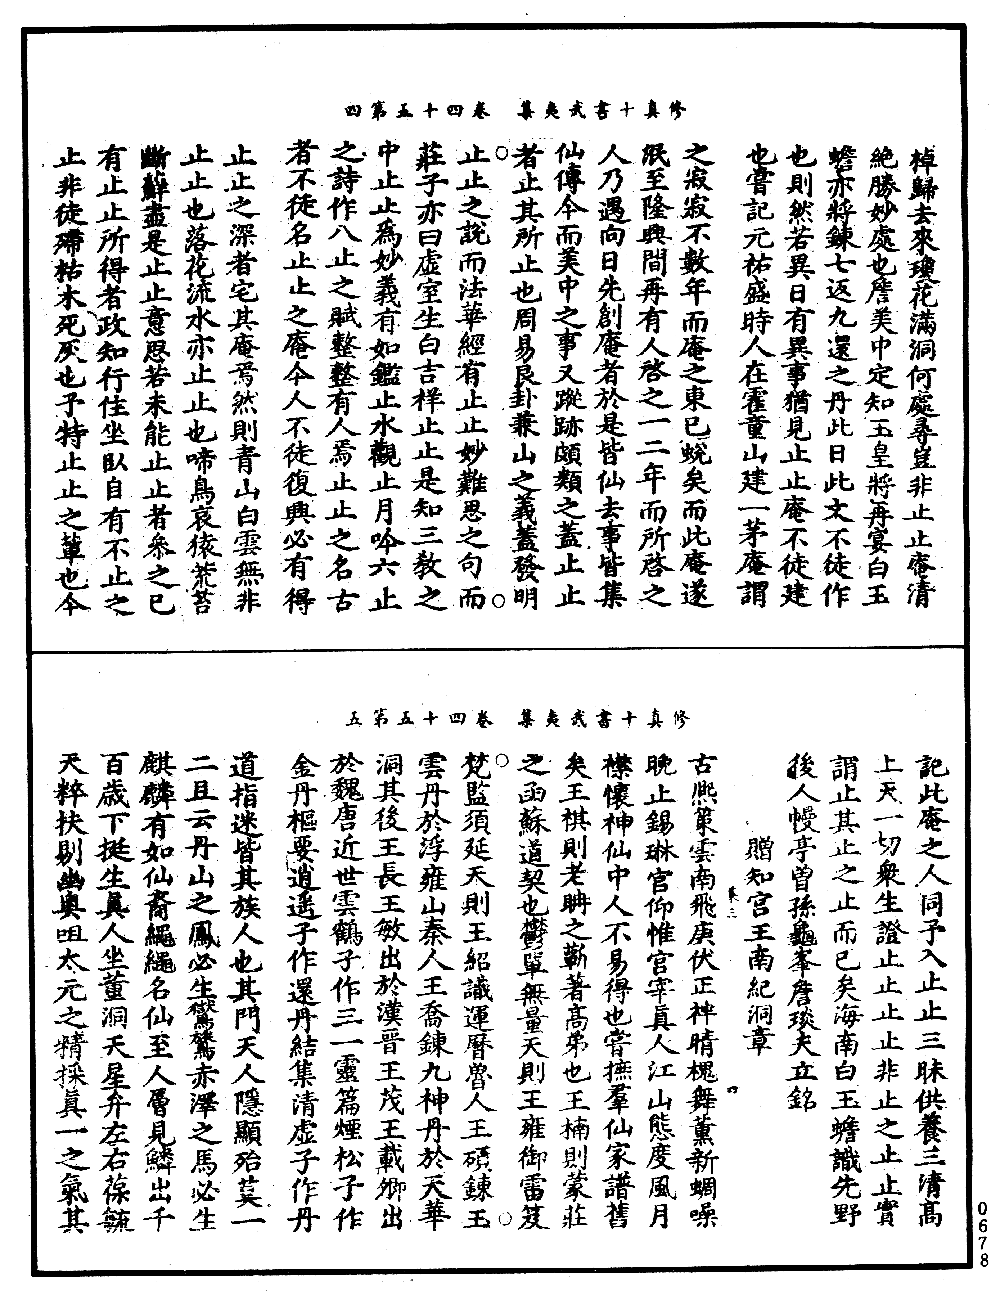 修真十書武夷集　卷四十五第四
棹歸去來瓊花滿洞何處尋豈非止止庵清
絶勝妙處也詹美中定知玉皇將再宴白玉
蟾亦將鍊七返九還之丹此日此文不徒作
也則然若異日有異事猶見止止庵不徒建
也嘗記元祐盛時人在霍童山建一茅庵謂
之寂寂不數年而庵之東已蛻矣而此庵遂
泯至隆興間再有人啓之一二年而所啓之
人乃遇向日先創庵者於是皆仙去事皆集
仙傳今而美中之事又蹤跡頗類之蓋止止
者止其所止也周易艮卦兼山之義蓋發明
止止之說而法華經有止止妙難思之句而
莊子亦曰虚室生白吉祥止止是知三教之
中止止爲妙義有如鑑止水觀止月吟六止
之詩作八止之賦整整有人焉止止之名古
者不徒名止止之庵今人不徒復興必有得
止止之深者宅其庵焉然則青山白雲無非
止止也落花流水亦止止也啼鳥哀猿荒苔
斷蘚盡是止止意思若未能止止者參之已
有止止所得者政知行住坐臥自有不止之
止非徒殢枯木死灰也予特止止之輩也今
修真十書武夷集　卷四十五第五
記此庵之人同予入止止三昧供養三清高
上天一切衆生證止止止止非止之止止實
謂止其止之止而已矣海南白玉蟾識先野
後人幔亭曽孫龜峯詹琰夫立銘
贈知宮王南紀洞章
古熈第雲南飛庚伏正神晴槐舞薰新蜩噪
晚止錫琳宮仰惟宮宰真人江山態度風月
襟懷神仙中人不易得也嘗撫羣仙家譜舊
矣王棋則老聃之蘄著高弟也王楠則蒙莊
之函蘇道契也鬱單無量天則王雍御雷笈
梵監須延天則王紹識運曆魯人王磧鍊玉
雲丹於浮雍山秦人王喬鍊九神丹於天華
洞其後王長王敏出於漢晉王茂王載卿出
於魏唐近世雲鶴子作三一靈篇煙松子作
金丹樞要逍遥子作還丹結集清虚子作丹
道指迷皆其族人也其門天人隱顯殆莫一
二且云丹山之鳳必生鸑鷟赤澤之馬必生
麒麟有如仙裔繩繩名仙至人層見鱗出千
百歳下挺生真人坐董洞天星弁左右葆毓
天粹抉剔幽奥咀太元之精採真一之氣其
0678